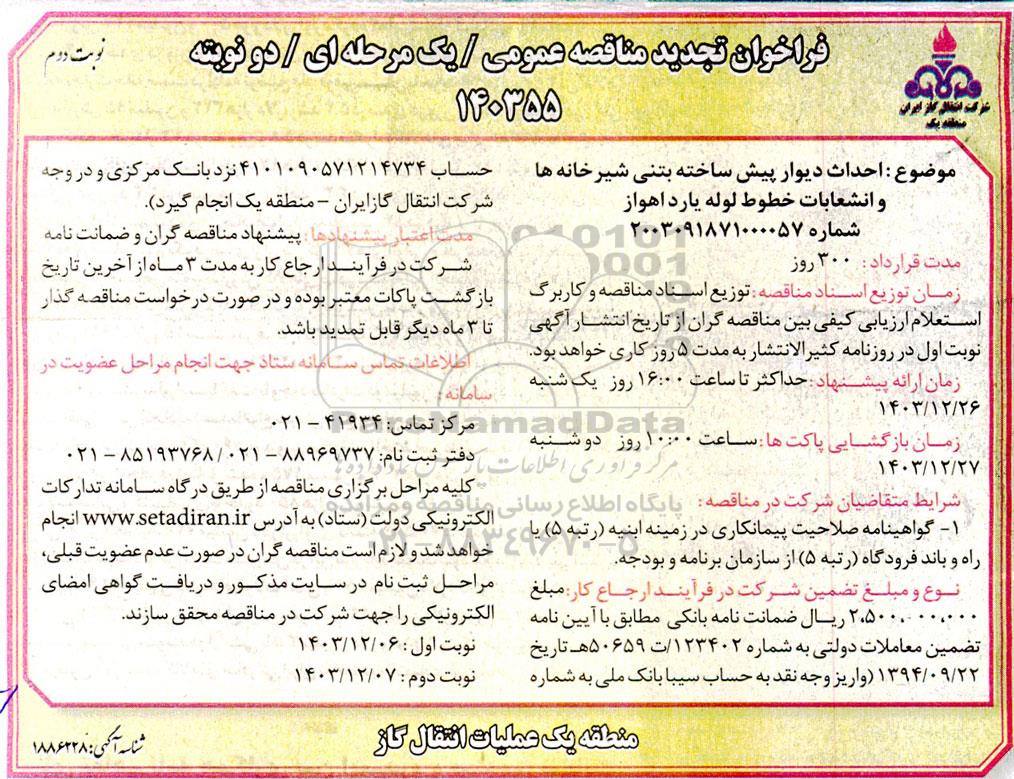 نوبت دوم
فراخوان تجدید مناقصه عمومی / یک مرحله ای / دو نوبته
۱۴۰۳۵۵
شرکت انتقال گاز ایران
منطقه یک
موضوع : احداث دیوار پیش ساخته بتنی شیر خانه ها
و انشعابات خطوط لوله یارد اهواز
شماره ۲۰۰۳۰۹۱۸۷۱۰۰۰۰۵۷
مدت قرارداد : ۳۰۰ روز
زمـان توزیع اسـناد مناقصه: توزیع اسـناد مناقصه و کاربرگ
اسـتعلام ارزیابی کیفی بین مناقصه گران از تاریخ انتشـار آگهی
نوبت اول در روزنامه کثیرالانتشار به مدت ۵ روز کاری خواهد بود.
زمان ارائه پیشـنهاد: حداکثر تا ساعت ۱۶:۰۰ روز یک شنبه
۱۴۰۳/۱۲/۲۶
زمـان بازگشـایی پاکت ها: سـاعت ۱۰:۰۰ روز دو شـنبه
۱۴۰۳/۱۲/۲۷
شرایط متقاضیان شرکت در مناقصه:
۱- گواهینامه صلاحیت پیمانکاری در زمینه ابنیه (رتبه ۵) یا
راه و باند فرودگاه (رتبه ۵) از سازمان برنامه و بودجه.
نـوع و مبلـغ تضمین شـرکت در فرآینـد ارجـاع کار: مبلغ
۲،۵۰۰،۰۰۰،۰۰۰ ریـال ضمانت نامه بانکی مطابق با آیین نامه
تضمین معاملات دولتی به شماره ۱۲۳۴۰۲/ت ۵۰۶۵۹هـ تاریخ
۱۳۹۴/۰۹/۲۲ (واریز وجه نقد به حساب سیبا بانک ملی به شماره
حساب ۴۱۰۱۰۹۰۵۷۱۲۱۴۷۳۴ نزد بانـک مرکزی و در وجه
شرکت انتقال گازایران – منطقه یک انجام گیرد).
مدت اعتبار پیشنهادها: پیشنهاد مناقصه گران و ضمانت نامه
شـرکت در فرآینـد ارجاع کار به مدت ۳ مـاه از آخرین تاریخ
بازگشـت پاکات معتبر بوده و در صورت درخواست مناقصه گذار
تا ۳ ماه دیگر قابل تمدید باشد.
اطلاعات تماس سـامانه ستاد جهت انجام مراحل عضویت در
سامانه:
مرکز تماس: ۴۱۹۳۴ – ۰۲۱
دفتر ثبت نام: ۸۸۹۶۹۷۳۷ – ۰۲۱ / ۸۵۱۹۳۷۶۸ – ۰۲۱
کلیه مراحل برگزاری مناقصه از طریق درگاه سـامانه تدارکات
الکترونیکی دولت (ستاد) به آدرس www.setadiran.ir انجام
خواهد شد و لازم است مناقصه گران در صورت عدم عضویت قبلی،
مراحـل ثبت نام در سایت مذکـور و دریافـت گواهی امضای
الکترونیکی را جهت شرکت در مناقصه محقق سازند.
نوبت اول : ۱۴۰۳/۱۲/۰۶
نوبت دوم : ۱۴۰۳/۱۲/۰۷
ParsNamadData
مرکز فرآوری اطلاعات پارس نماد داده ها
پایگاه اطلاع رسانی مناقصه و مزایده
۰۲۱-۸۸۳۴۹۶۷۰-۵
منطقه یک عملیات انتقال گاز
شناسه آگهی: ۱۸۸۶۲۲۸